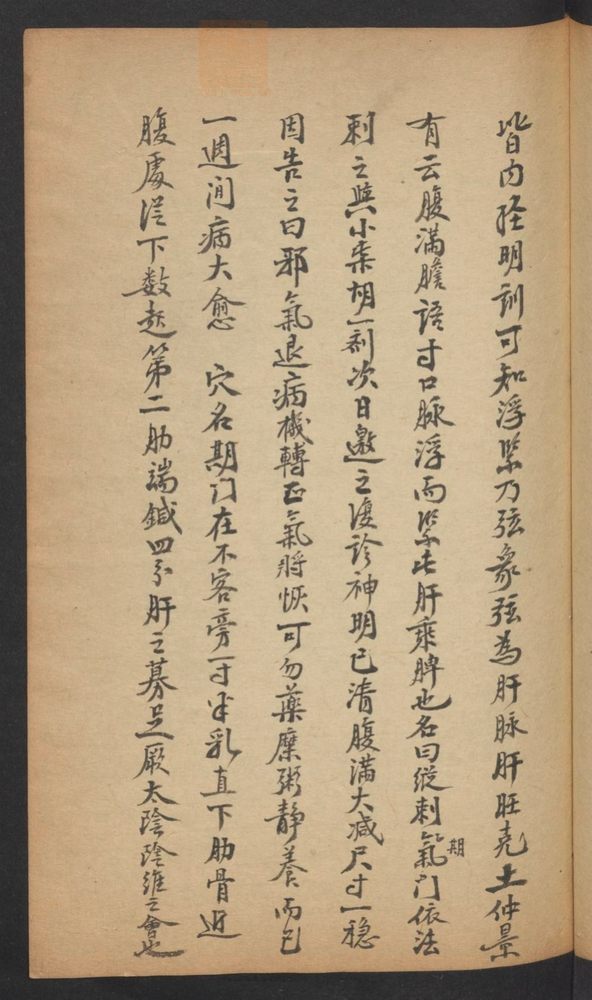 皆内経明訓可知浮緊乃弦象弦為肝脉肝旺克土仲景
有云腹満譫語寸口脉浮而緊此肝乘脾也名曰縦刺氣期门依法
刺之與小柴胡一剤次日邀之復診神明已清腹満大减尺寸一穏
因告之曰邪氣退病機轉正氣將恢可勿藥糜粥静養而已
一週间病大愈　穴名期门在不容旁一寸半乳直下肋骨近
腹處従下数起第二肋端鍼四分肝之募足厥太陰陰維之會也